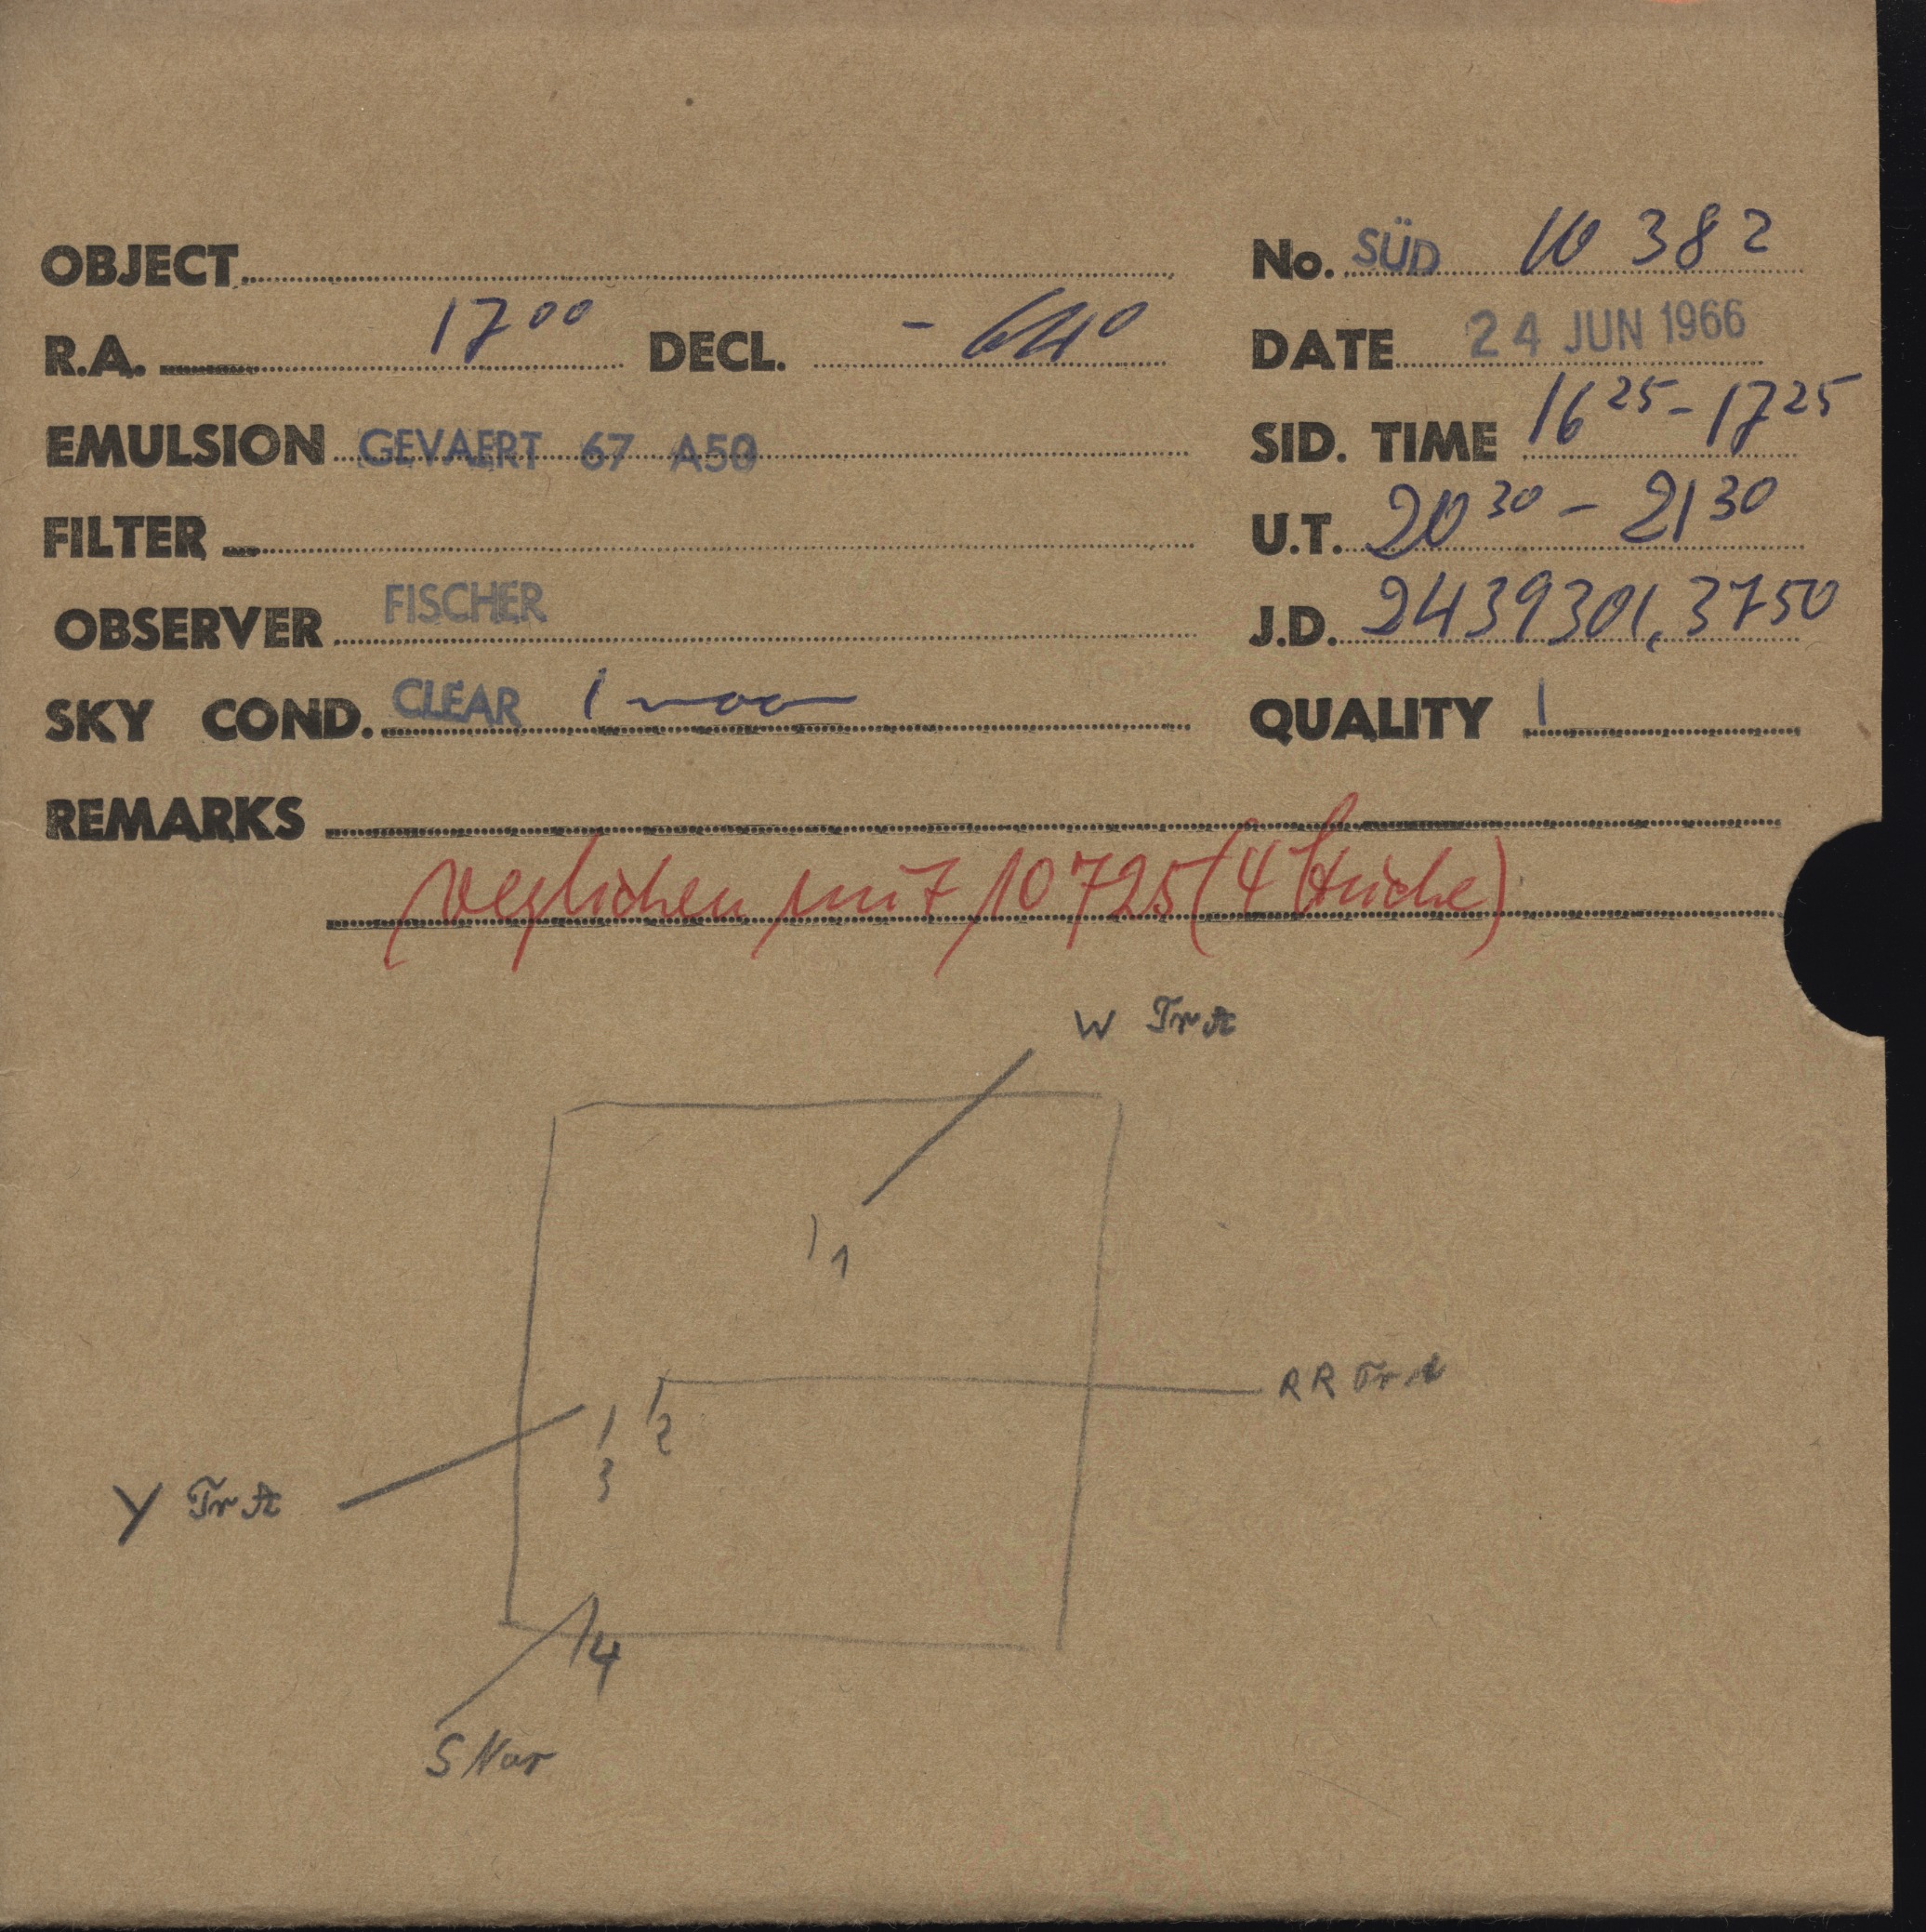 OBJECT No. SÜD 10 382
R.A. 17 00 DECL. - 64°
DATE 24 JUN 1966
EMULSION GEVAERT 67 A50
SID. TIME 16 25 - 17 25
FILTER
U.T. 20 30 - 21 30
OBSERVER FISCHER
J.D. 2439301,3750
SKY COND. CLEAR moon
QUALITY 1
REMARKS
veglichen mit 10725 (4 Striche)
W TrA
1
RR TrA
2
3
Y TrA
4
S Nor